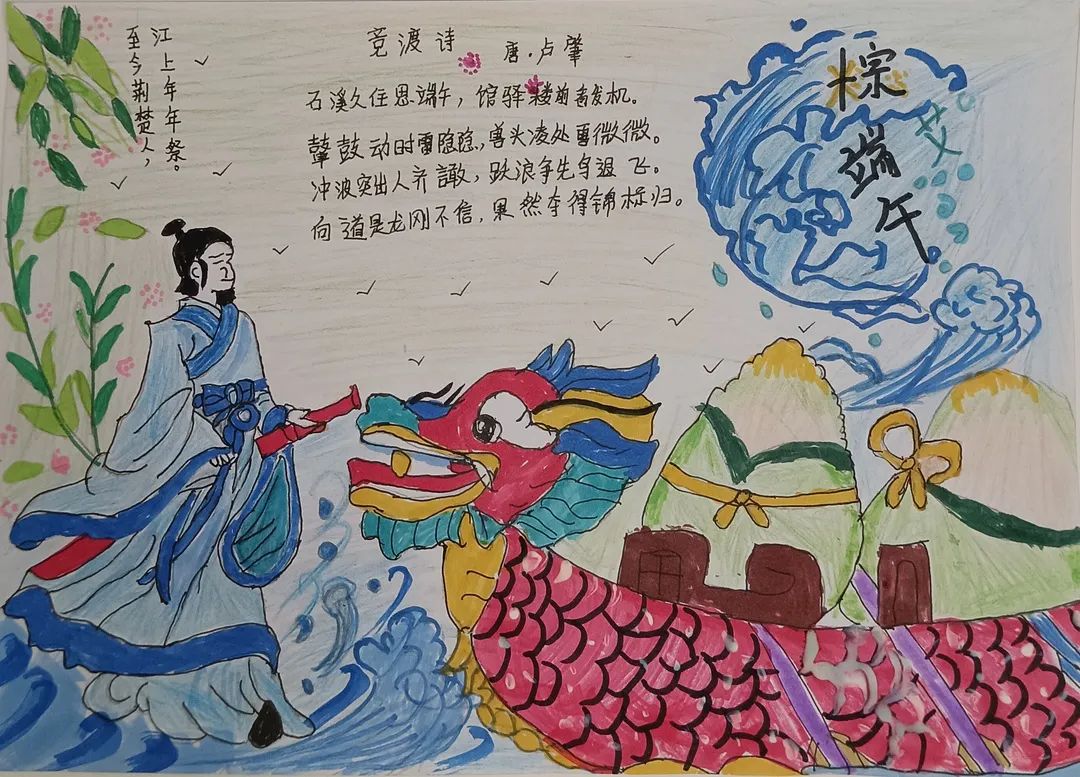 江上年年祭。
至今荆楚人，
竞渡诗 唐.卢肇
石溪久住思端午，馆驿楼前看发机。
鼙鼓动时雷隐隐，兽头凌处雪微微。
冲波突出人齐譀，跃浪争先鸟退飞。
向道是龙刚不信，果然夺得锦标归。
粽
艾
端午。